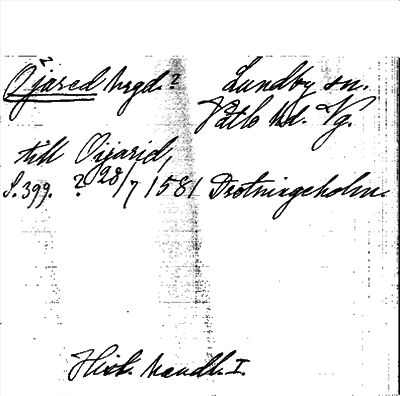 Öjared hrgd.? Lundby sn.
Vättle hd. Vg.
till Oijarid,
S. 399. ? 28/7 1581 Drotningeholm.
Hist. handl. I.